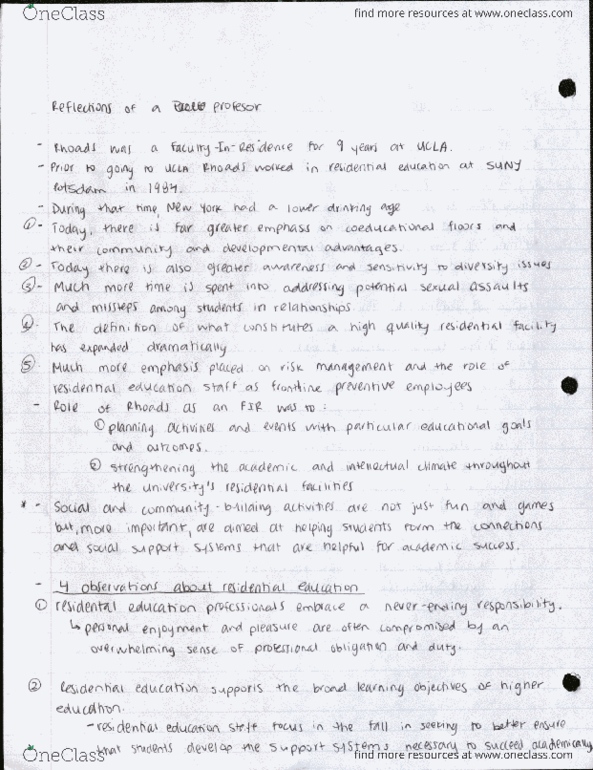 OneClass
find more resources at www.oneclass.com
Reflections of a profesor
- Rhoads was a Faculty-In-Residence for 9 years at UCLA.
- Prior to going to UCLA Rhoads worked in residential education at SUNY
Potsdam in 1984.
- During that time, New York had a lower drinking age
① - Today, there is far greater emphass on coeducational floors and
their community and developmental advantages.
② - Today there is also greater awareness and sensitivity to diversity issues
③ - Much more time is spent into addressing potential sexual assaults
and missteps among students in relationships.
④ - The definition of what constitutes a high quality residential facility
has expanded dramatically
⑤ Much more emphasis placed on risk management and the role of
residential education staff as frontline preventive employees
- Role of Rhoads as an FIR was to:
① planning activities and events with particular educational goals
and outcomes.
② strengthening the academic and intellectual climate throughout
the university's residential facilities
* - Social and community-building activities are not just fun and games
but, more important, are aimed at helping students form the connections
and social support systems that are helpful for academic success.
- 4 observations about residential education
① residental education professionals embrace a never-ending responsibility.
↳ personal enjoyment and pleasure are often compromised by an
overwhelming sense of professional obligation and duty.
② Residential education supports the broad learning objectives of higher
education.
- residential education staff focus in the fall in seeking to better ensure
that students develop the support systems necessary to succeed academically
OneClass
find more resources at www.oneclass.com